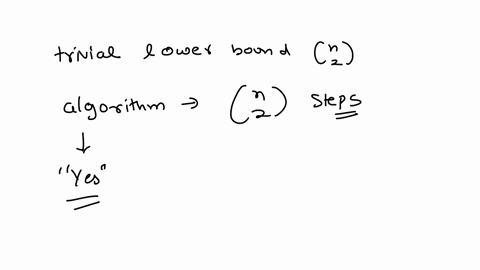 trivial lower bound (n 2)
algorithm → (n 2) steps
↓
"Yes"